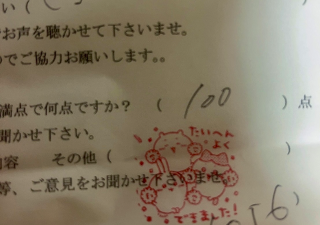 お声を聴かせて下さいませ。
でご協力お願いします。。
満点で何点ですか？ （ 100 ）点
聞かせ下さい。
内容 その他（ ）
等、ご意見をお聞かせ下さいませ
たいへん
よく
できました！